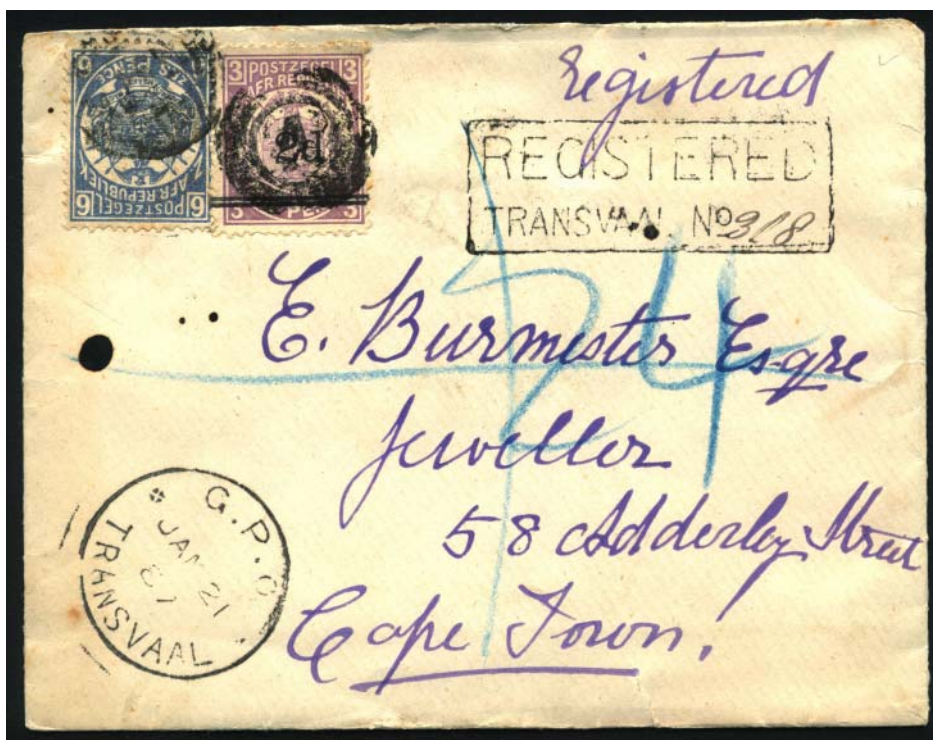 6 POSTZEGEL 6
Z. AFR. REPUBLIEK
6 ZES PENCE 6
3 POSTZEGEL 3
AFR. REP
2d
3 PEN 3
Registered
REGISTERED
TRANSVAAL. No 318
24
E. Burmester Esqre
Jeweller
58 Adderley Street
Cape Town!
G.P.O.
JAN 21
87
TRANSVAAL